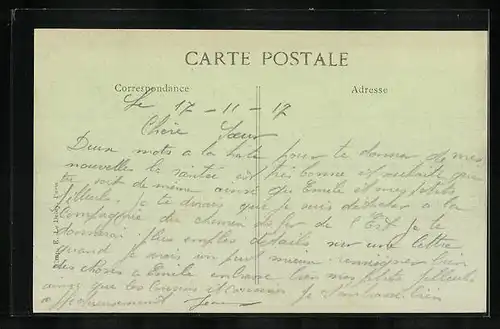 CARTE POSTALE
Correspondance
Adresse
Le 17-11-17
Chère Sœur
Deux mots a la hate pour te donner de mes
nouvelles la santée est très bonne et souhaite que
te soit de même ainsi que Emile et mes petits
filleuls. Je te dirais que je suis détacher a la
Compagnie du chemin de fer de l'Est Je te
donnerai plus amples détails sur une lettre
quand je serais un peu mieux bien
des choses a Emile embrasse bien mes petits filleuls
ainsi que les cousins et cousines Je t'embrasse bien
affectueusement